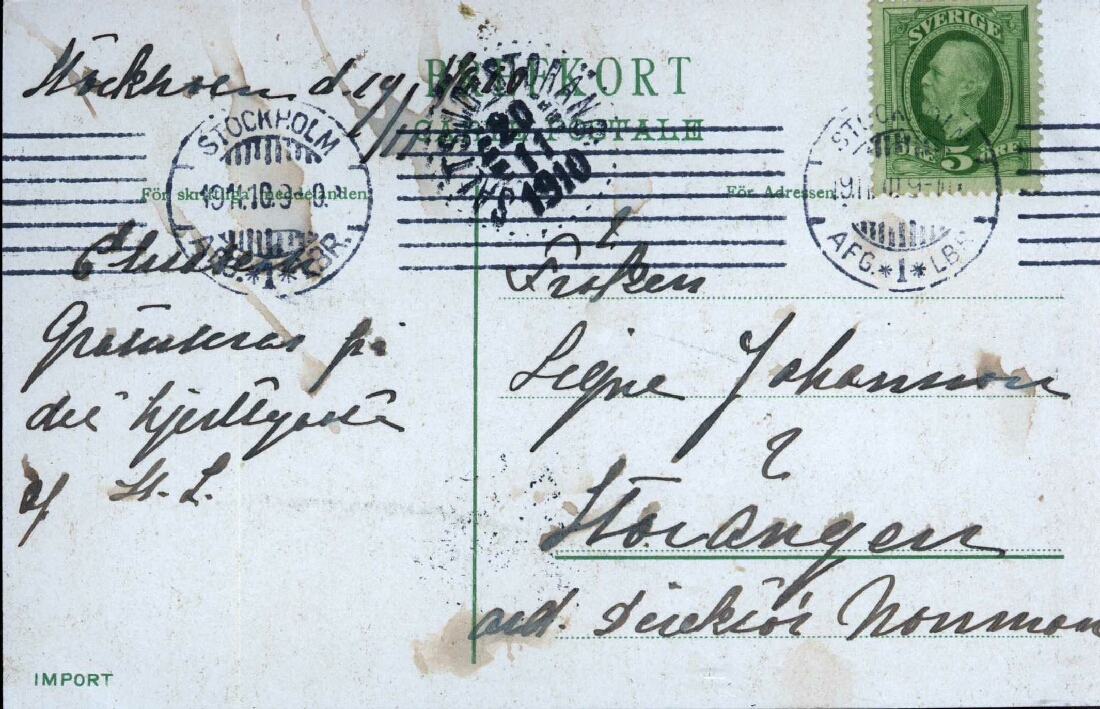 Stockholm d. 19/11 1910
BREFKORT
CARTE POSTALE
SVERIGE
5 ÖRE
STOCKHOLM
19.11.10.9
AFG. *1* LBR.
20
11
1910
STOCKHOLM
19.11.10.9-
AFG. *1* LBR.
För skriftliga meddelanden.
För Adressen.
Gratuleras på
det hjertligaste
af H. L.
Fröken
Signe Johansson
Storängen
adr. Direktör Norrman
IMPORT